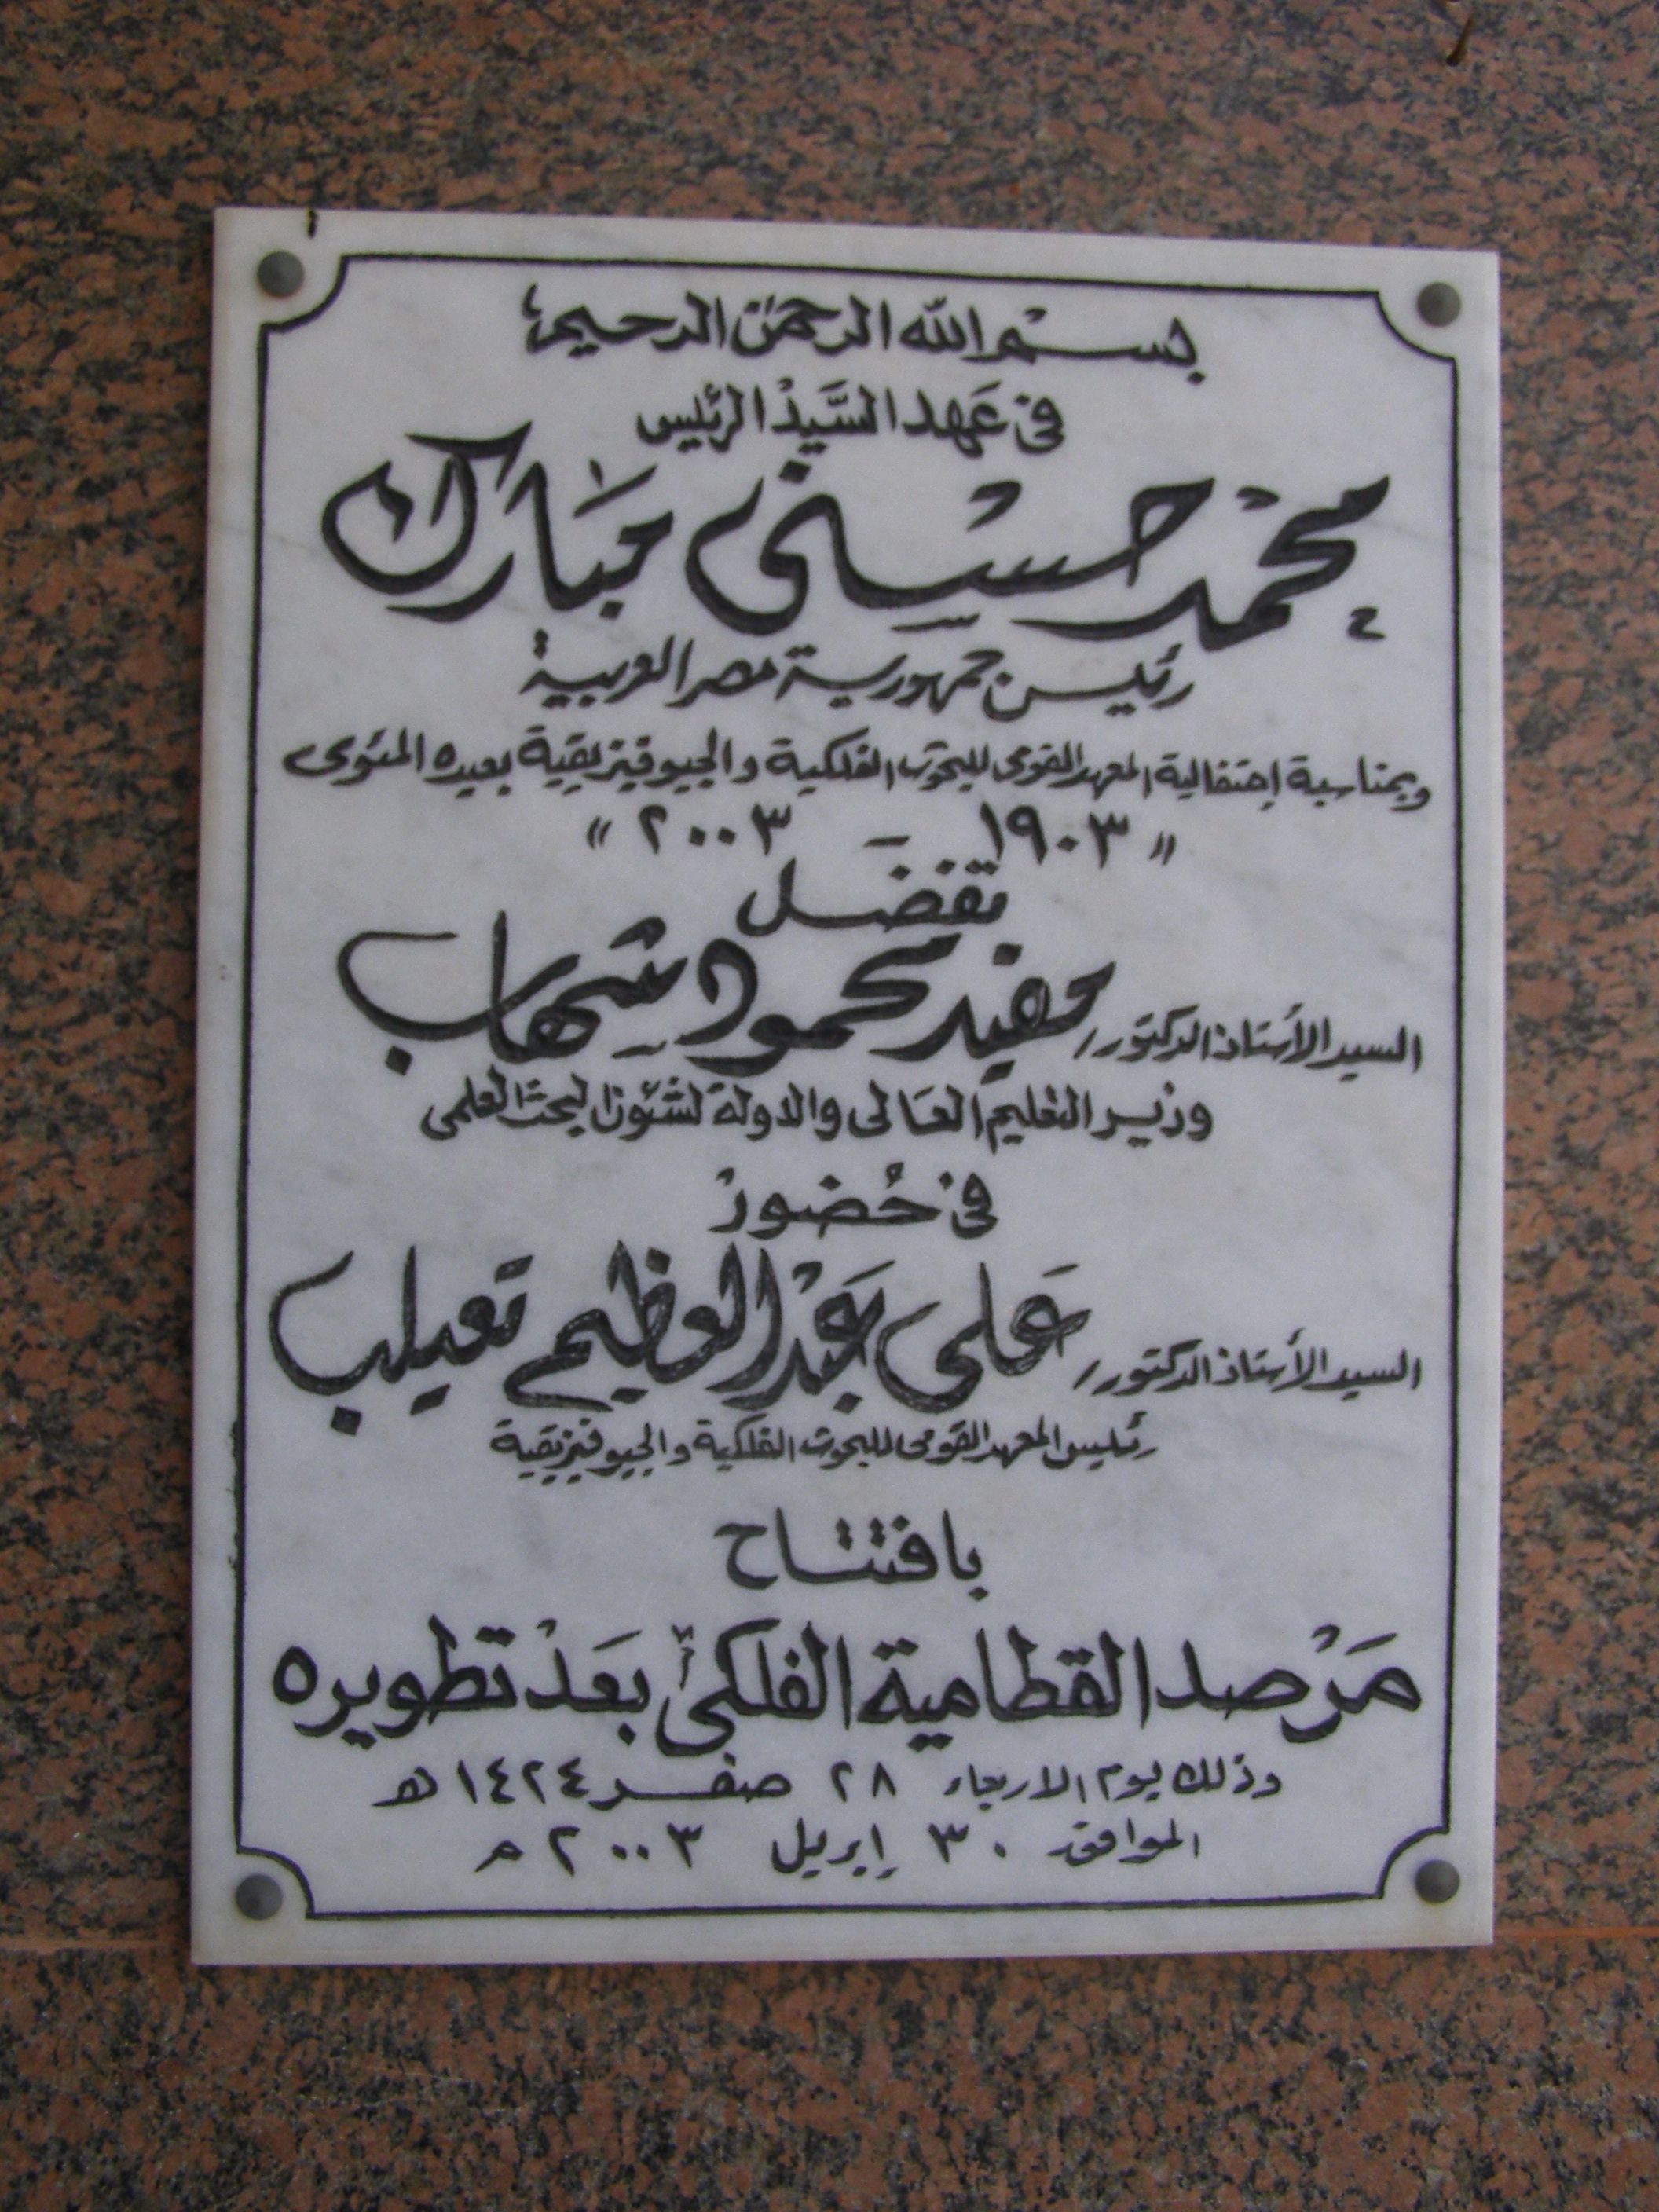 بسم الله الرحمن الرحيم
فى عهد السيد الرئيس
محمد حسنى مبارك
رئيس جمهورية مصر العربية
وبمناسبة إحتفالية المعهد القومى للبحوث الفلكية والجيوفيزيقية بعيده المئوى
" ١٩٠٣ ٢٠٠٣ "
تفضل
السيد الأستاذ الدكتور/ مفيد محمود شهاب
وزير التعليم العالى والدولة لشئون البحث العلمى
فى حضور
السيد الأستاذ الدكتور/ على عبد العظيم تعيلب
رئيس المعهد القومى للبحوث الفلكية والجيوفيزيقية
بافتتاح
مرصد القطامية الفلكى بعد تطويره
وذلك يوم الاربعاء ٢٨ صفر ١٤٢٤ هـ
الموافق ٣٠ إبريل ٢٠٠٣ م